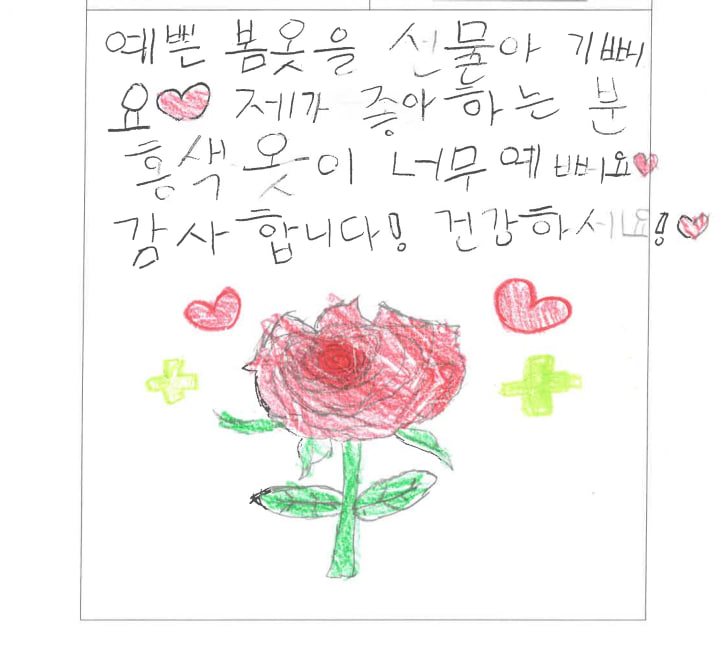 예쁜 봄옷을 선물아 기뻐
요♥ 제가 좋아하는 분
홍색 옷이 너무 예뻐요♥
감사합니다! 건강하세요!♥